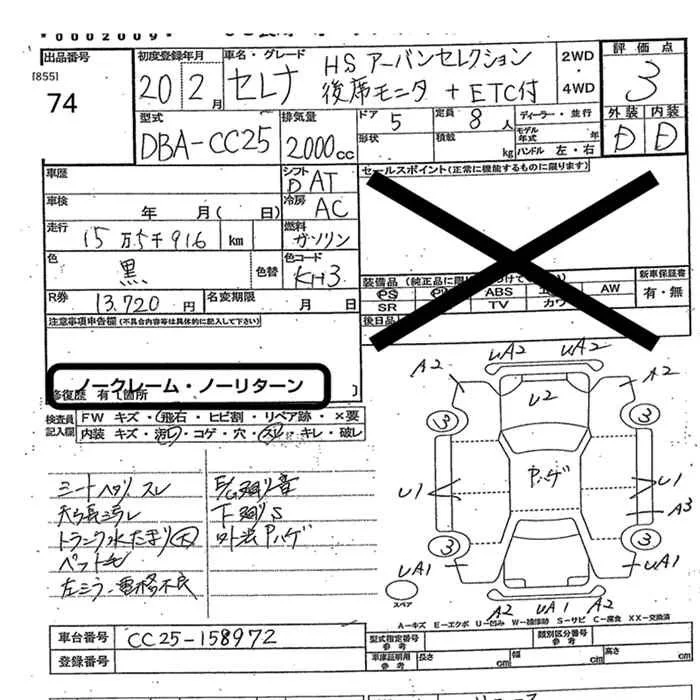 *0002009*
出品番号
[855]
74
初度登録年月
20 2月
車名・グレード
セレナ
HS アーバンセレクション
後席モニタ + ETC付
2WD
・
4WD
評価点
3
外装 内装
D D
型式
DBA-CC25
排気量
2000cc
ドア
5
形状
定員
8人
積載
kg
ディーラー・並行
モデル年式 年
ハンドル 左・右
車歴
車検 年 月( 日)
走行
15万5千916 km
色
黒
色替
R券
13.720円
名変期限 月 日
シフト
DAT
冷房
AC
燃料
ガソリン
色コード
KH3
セールスポイント(正常に機能するものに限ります)
装備品(純正品に限
PS ABS AW
SR TV カワ
後日品
新車保証書
有・無
注意事項申告欄(不具合内容等は具体的に記入して下さい)
ノークレーム・ノーリターン
修復歴 有〔箇所 〕
検査員記入欄
FW キズ・飛石・ヒビ割・リペア跡・×要
内装 キズ・汚れ・コゲ・穴・スレ・キレ・破レ
シートヘタリ スレ
トランク水たまり大
下廻りS
外装Pハゲ
A2 UA2 UA2 A2
U2
3 3
Pハゲ
U1 U1
A3
3 3
UA1 UA1
A2 UA1 A2
スペア
A-キズ E-エクボ U-凹み W-補修跡 S-サビ C-腐食 XX-交換済
車台番号
CC25-158972
登録番号
型式指定番号
参考
類別区分番号
参考
車庫証明用
参考
長さ cm
幅 cm
高さ cm